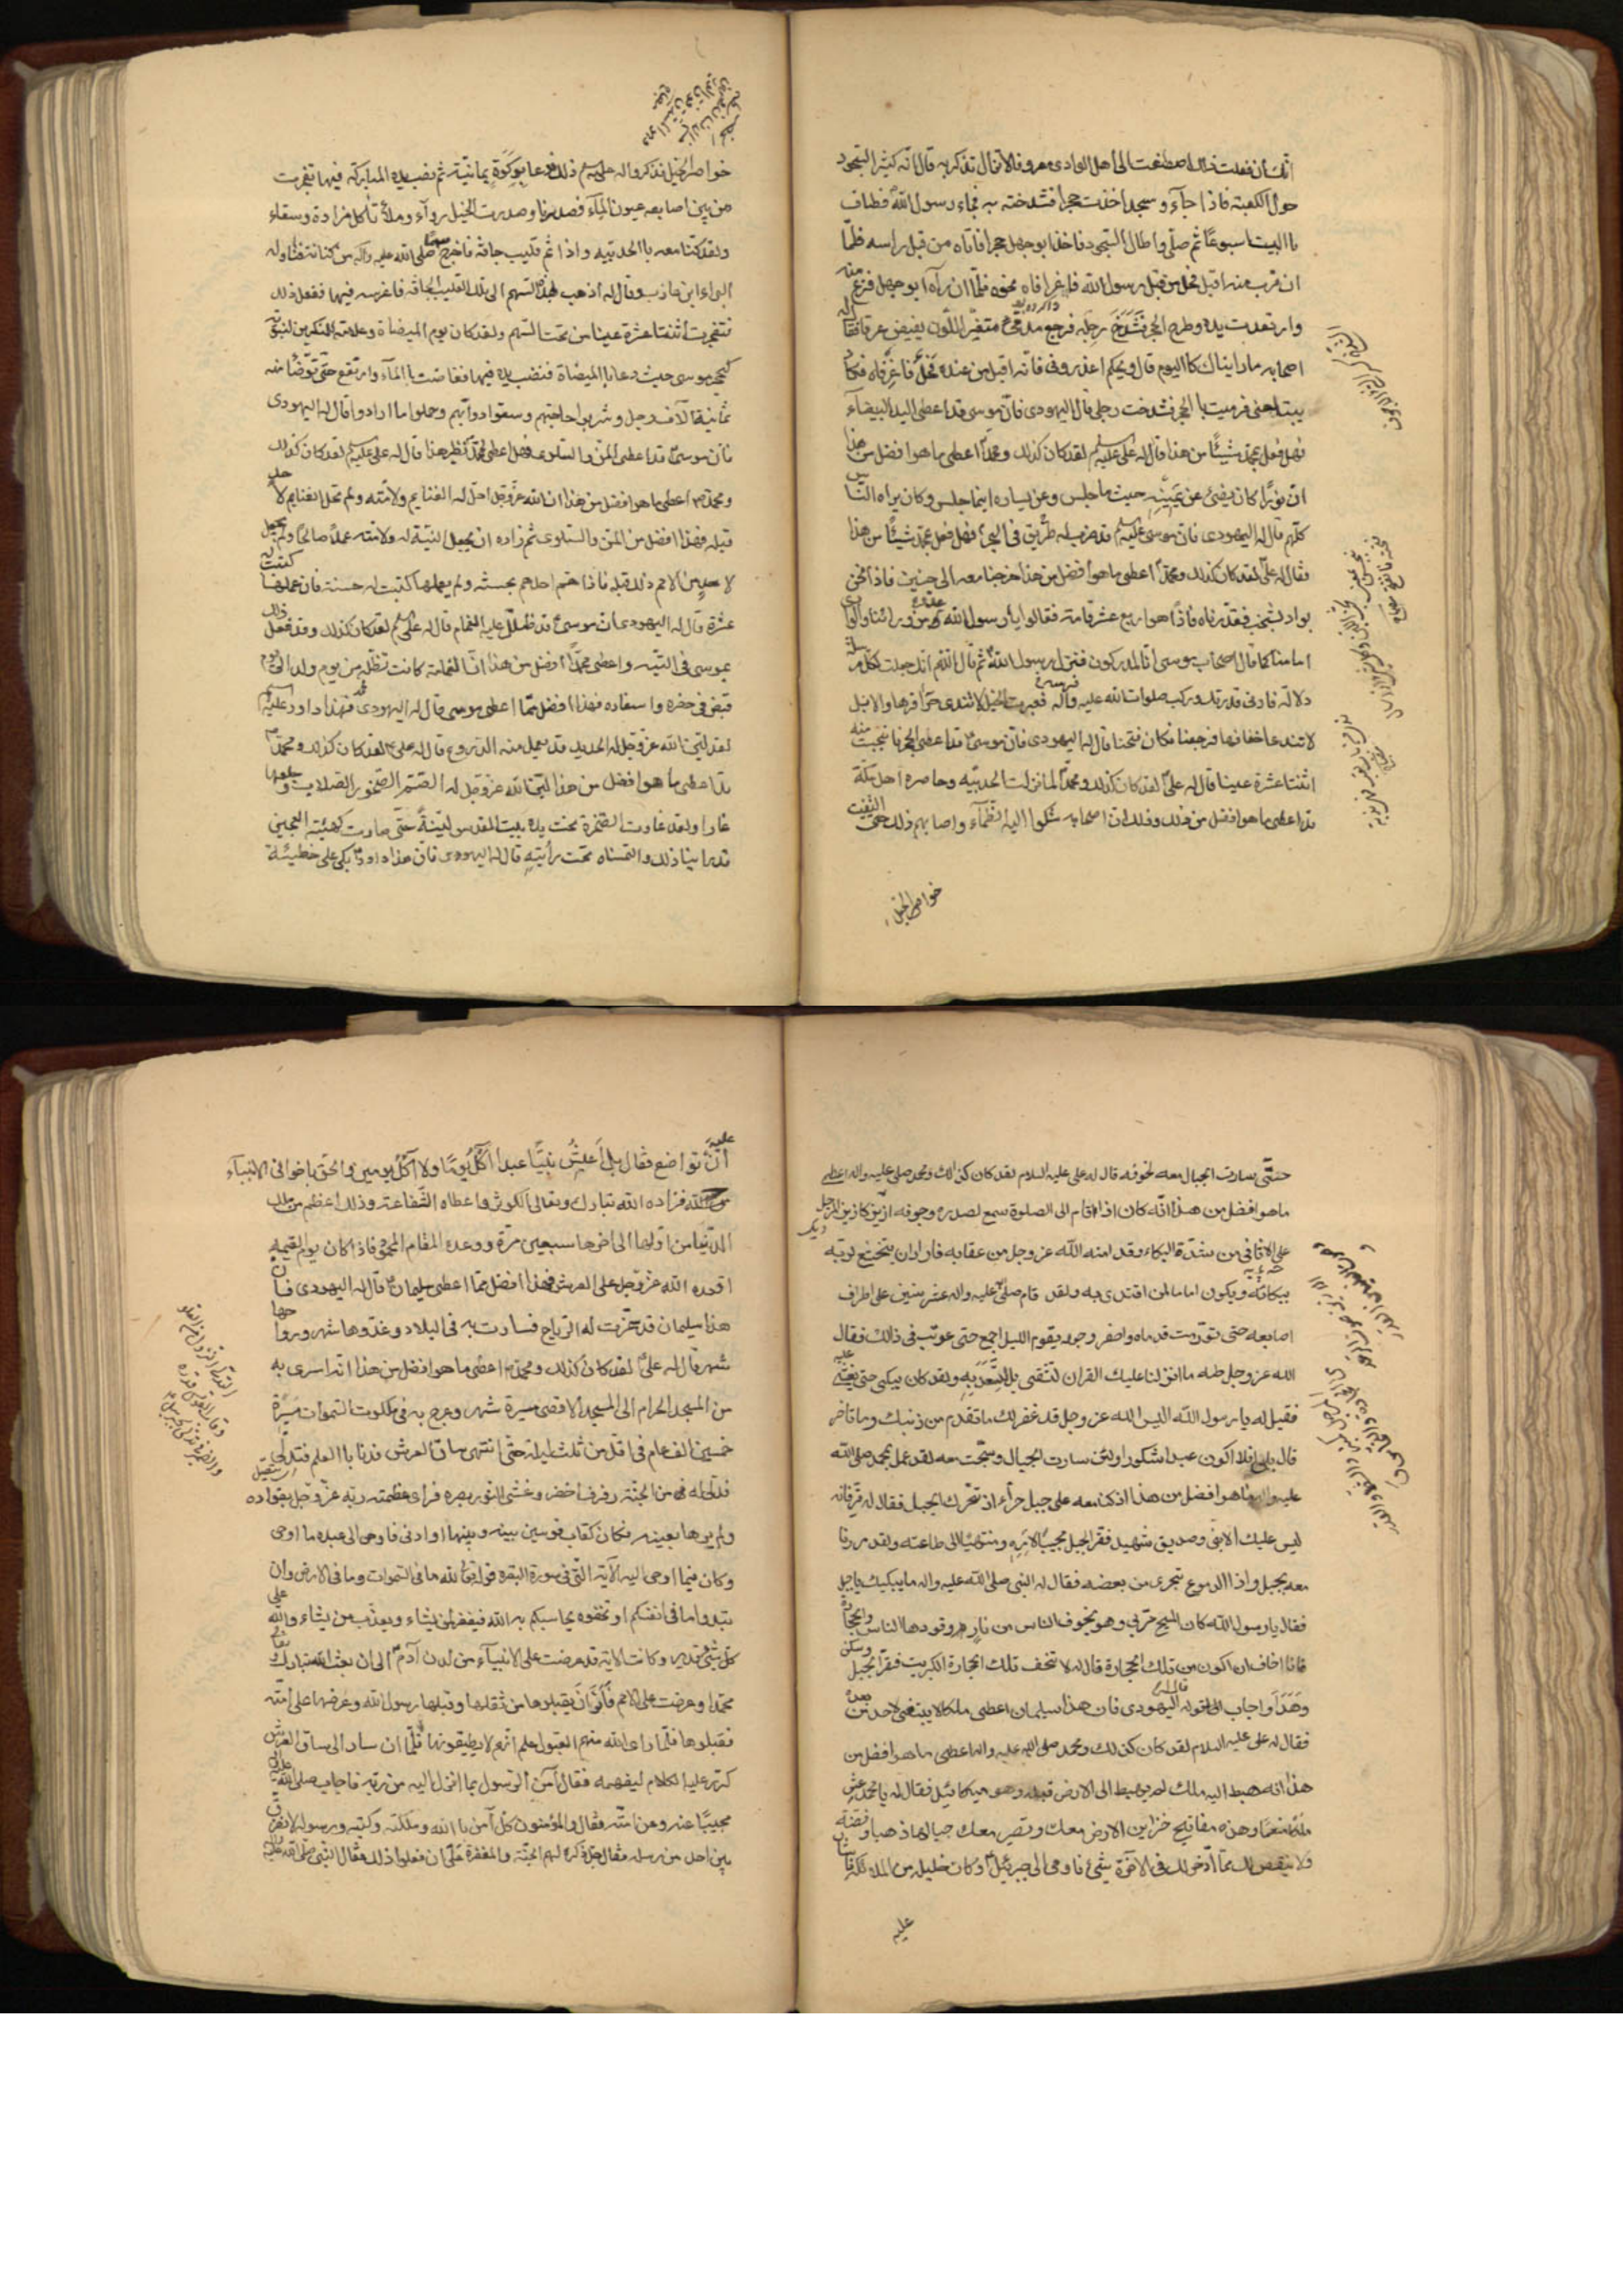 انك ان فعلت ذلك اصطنعت الى اهل الوادى معروفا لا تزال تذكر به قال انه كثير السجود
حول الكعبة فاذا جآء و سجد اخذت حجرا فشدخته به فجاء رسول الله فطاف
باالبيت اسبوعًا ثم صلّى واطال السّجود فاخذ ابوجهل حجرا فاتاه من قبل راسه فلمّا
ان قرب منه اقبل فحل من قبل رسول الله فاغرا فاه نحوه فلمّا ان رآه ابوجهل فزع منه
وارتعدت يده وطرح الحجر فشدخ رجله فرجع مدمّى متغيّر اللّون يفيض عرقا فقال له
اصحابه ما راينا ك كا اليوم قال ويحكم اعذرونى فانه اقبل من عنده فحل فاغرفاه فكاد
يبتلعنى فرميت با الحجر فشدخت رجلى قال اليهودى فانّ موسى قد اعطى اليد البيضآء
فهل فعل بمحمّد شيئًا من هذا قال له على عليه السلم لقد كان كذلك ومحمّد اعطى ما هوا فضل من هذا
انّ نورًا كان يضئ عن يمينه حيث ما جلس وعن يساره اينما جلس وكان يراه النّاس
كلّهم قال له اليهودى فان موسى عليه السلم قد ضرب له طريق فى البحر فهل فعل بمحمّد شيئًا من هذا
فقال له علىّ لقد كان كذلك ومحمّدًا اعطى ما هوا فضل من هذا خرجنا معه الى حنين فاذا نحن
بواد يشخب فقدّرناه فاذًا هوا ربع عشر قامة فقالوا يا رسول الله العدو من ورائنا والوادى
امامنا كما قال اصحاب موسى انّا لمدركون فنزل رسول اللهَ ثم قال اللهم انك جعلت لكل مرسل
دلالة فارنى قدرتك وركب صلوات الله عليه وآله فعبرت الخيل لا تندى حوافرها والابل
لا تندى اخفافها فرجعنا فكان فتحنا قال له اليهودى فان موسىٰ قد اعطى الحجر فانبجست منه
اثنتا عشرة عينا قال له علىّ لقد كان كذلك ومحمّدٌ لما نزلت الحديبيه وحاصره اهل مكّة
قد اعطى ما هوا فضل من ذلك وذلك انّ اصحابه شكوا اليه الظّماء واصابهم ذلك حتى التفت
خواصر الخيل
خواصر الخيل فذكروا له عليه السلم ذلك فدعا بركوة يمانيّة ثم نصب يده المباركة فيها فتفجرت
من بين اصابعه عيون المآء فصدرنا وصدرت الخيل روآء وملأنا كل مزادة وسقاء
ولقد كنّا معه باالحديبيه واذا ثمّ قليب جافّة فاخرج صلّى الله عليه واله سهمًا من كنانته فناوله
البراء ابن عازب وقال له اذهب بهذا السّهم الى تلك القليب الجافّه فاغرسه فيها ففعل ذلك
فتفجرت اثنتا عشرة عينا من تحت السّهم ولقد كان يوم الميضاة وعلامة للمنكرين لنبوّته
كحجر موسى حيث دعا باالميضاة فنصب يده فيها ففاضت باالمآء وارتفع حتى توضّا منه
ثمانية آلاف رجل وشربوا حاجتهم وسقوا دوابّهم وحملوا ما ارادوا قال له اليهودى
فان موسىَ قد اعطى المنّ والسّلوى فهل اعطى محمّد نظير هذا قال له على عليه السلم لقد كان كذلك
ومحمّد اعطى ما هوا فضل من هذا انّ الله عزّوجل احلّ له الغنايم ولامّته ولم تحل الغنايم لاحد
قبله فهذا افضل من المنّ والسّلوى ثم زاده ان جعل النيّة له ولامّته عملاً صالحًا ولم يجعل
لا حد من الامم ذلك قبله فاذا همّ احدهم بحسنة ولم يعملها كتبت له حسنة فان عملها كتبت له
عشرة قال له اليهودى ان موسىٰ قد ظلّل عليه الغمام قال له على عليه السلم لقد كان كذلك وقد فعل ذلك
بموسى فى التّيه واعطى محمّدًا افضل من هذا انّ الغمامة كانت تظلّه من يوم ولد الى يوم
قبض فى حضره واسفاره فهذا افضل ممّا اعطى موسى قال له اليهودى فهذا داود عليه السلم
لقد ليّن الله عزّوجل له الحديد قد يعمل منه الدّروع قال له على لقد كان كذلك ومحمّد
قد اعطى ما هوا فضل من هذا ليّن الله عزّوجل له الصّمّ الصّخور الصّلاب وجعلها
غارا ولقد غارت الصّخرة تحت يده ببيت المقدس ليّنةً حتّى صارت كهيئة العجين
قد راينا ذلك والتمسناه تحت رايته قال له اليهودى فان هذا داودَ بكى على خطيئة
حتّى سارت الجبال معه لخوفه قال له على عليه السلام لقد كان كذلك ومحمد صلى عليه واله اعطى
ما هو افضل من هذا انّه كان اذا قام الى الصلوة سمع لصدره وجوفه ازيز كازيز المرجل
على الاثافى من شدّة البكاء وقد امنه الله عز وجل من عقابه فاراد ان يتخشع لربّه
ببكائه ويكون اماما لمن اقتدى به ولقد قام صلى عليه واله عشر سنين على اطراف
اصابعه حتى تورّمت قدماه واصفر وجهه يقوم الليل اجمع حتى عوتب فى ذالك فقال
الله عز وجل طه ما انزلنا عليك القران لتشقى بل لتسعد به ولقد كان يبكى حتى يغشى عليه
فقيل له يا رسول الله اليس الله عز وجل قد غفر لك ما تقدم من ذنبك وما تاخر
قال بلى افلا اكون عبدا شكورا ولئن سارت الجبال وسبّحت معه لقد عمل بمحمد صلى الله
عليه واله ما هوا فضل من هذا اذ كنا معه على جبل حراء اذ تحرّك الجبل فقال له قرّ فانه
ليس عليك الا نبى وصديق شهيد فقر الجبل مجيبًا لامره ومنتهيًا الى طاعته ولقد مررنا
معه بجبل واذا الدموع تجرى من بعضه فقال له النبى صلى الله عليه واله ما يبكيك يا جبل
فقال يا رسول الله كان المسيح مرّ بى وهو يخوف الناس من نارٍ وقودها الناس والحجارة
فانا اخاف ان اكون من تلك الحجارة قال له لا تخف تلك الحجارة الكبريت فقرّ الجبل وسكن
وهدا واجاب لقوله قال له اليهودى فان هذا سليمان اعطى ملكا لا ينبغى لاحد من بعده
فقال له على عليه السلام لقد كان كذلك ومحمد صلى الله عليه واله اعطى ما هوا فضل من
هذا انه هبط اليه ملك لم يهبط الى الارض قبله وهو ميكائيل فقال له يا محمد عش
ملكًا منعمًا وهذه مفاتيح خزاين الارض معك وتسير معك جبالها ذهبا وفضة
ولا ينقص لك ممّا ادّخر لك فى الآخرة شئ فاومى الى جبرئيل وكان خليله من الملائكة فاشار
عليه
عليه انّ تواضع فقال بل اعيش نبيًّا عبدا آكل يومًا ولا آكل يومين والحق باخوانى الانبيآء
فزاده الله تبارك وتعالى الكوثر واعطاه الشّفاعة وذلك اعظم من ملك
الدّنيا من اوّلها الى اخرها سبعين مرّة ووعده المقام المحمود فاذا كان يوم القيمة
اقعده الله عزّوجل على العرش فهذا افضل ممّا اعطى سليمان قال له اليهودى فان
هذا سليمان قد سخّرت له الرّياح فسارت به فى البلاد وغدوّها شهر ورواحها
شهر قال له علىّ لقد كان كذلك ومحمّد اعطى ما هوا فضل من هذا انّه اسرى به
من المسجد الحرام الى المسجد الاقصى مسيرة شهر وعرج به فى ملكوت السّموات مسيرة
خمسين الف عام فى اقلّ من ثلث ليلة حتّى انتهى ساق العرش فدنا باالعلم فتدلّى
فدلى له من الجنّة رفرف اخضر وغشى النّور بصره فراى عظمة ربّه عزّوجل بفواده
ولم يرها بعينه فكان كقاب قوسين بينه وبينها او ادنى فاوحى الى عبده ما اوحى
وكان فيما اوحى اليه الآية الّتى فى سورة البقره قوله تعالى لله ما فى السّموات وما فى الارض وان
تبدوا ما فى انفسكم او تخفوه يحاسبكم به الله فيغفر لمن يشاء ويعذّب من يشاء والله على
كل شئ قدير وكانت الآية قد عرضت على الانبيآء من لدن آدمَ الى ان بعث الله تبارك وتعالى
محمّدا وعرضت على الامم فابوا ان يقبلوها من ثقلها وقبلها رسول الله وعرضها على امّته
فقبلوها فلمّا راى الله منهم القبول علم انّهم لا يطيقونها فلمّا ان سار الى ساق العرش
كرّر عليه الكلام ليفهمه فقال آمن الرّسول بما انزل اليه من ربّه فاجاب صلى الله عليه واله
مجيبًا عنه وعن امّته فقال والمؤمنون كلّ آمن باالله وملئكته وكتبه ورسوله لا نفرّق
بين احد من رسله فقال جلّ ذكره لهم الجنّة والمغفرة علىّ ان فعلوا ذلك فقال النّبى صلّى الله عليه